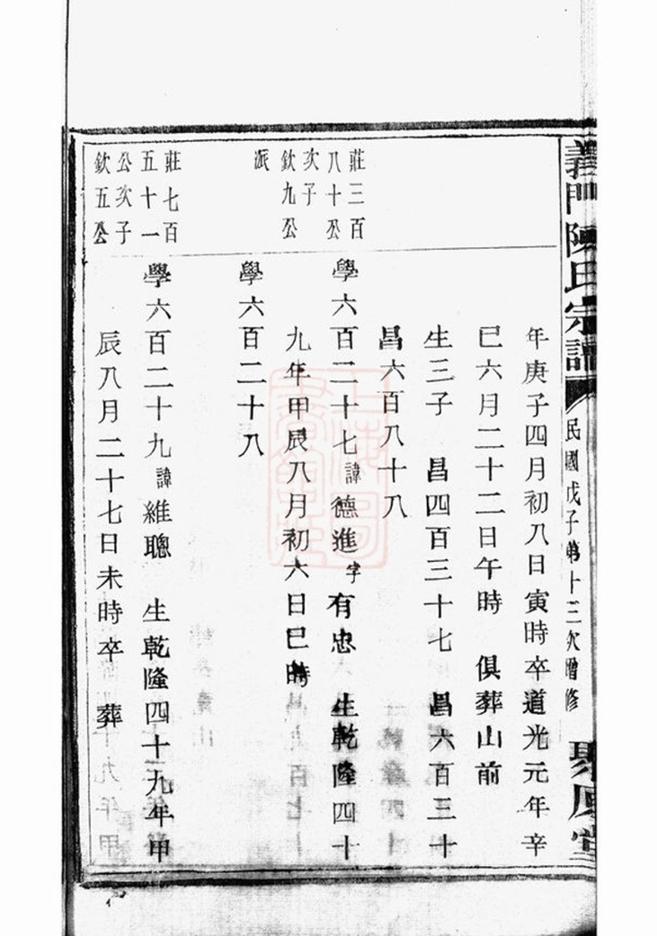 義門陳氏宗譜
民國戊子第十三次增修
聚原堂
年庚子四月初八日寅時卒道光元年辛
巳六月二十二日午時 俱葬山前
生三子 昌四百三十七 昌六百三十
昌六百八十八
莊三百
八十公
次子
欽九公
派
學六百二十七諱德進字有忠 生乾隆四十
九年甲辰八月初六日巳時
學六百二十八
莊七百
五十一
公次子
欽五公
學六百二十九諱維聰 生乾隆四十九年甲
辰八月二十七日未時卒 葬